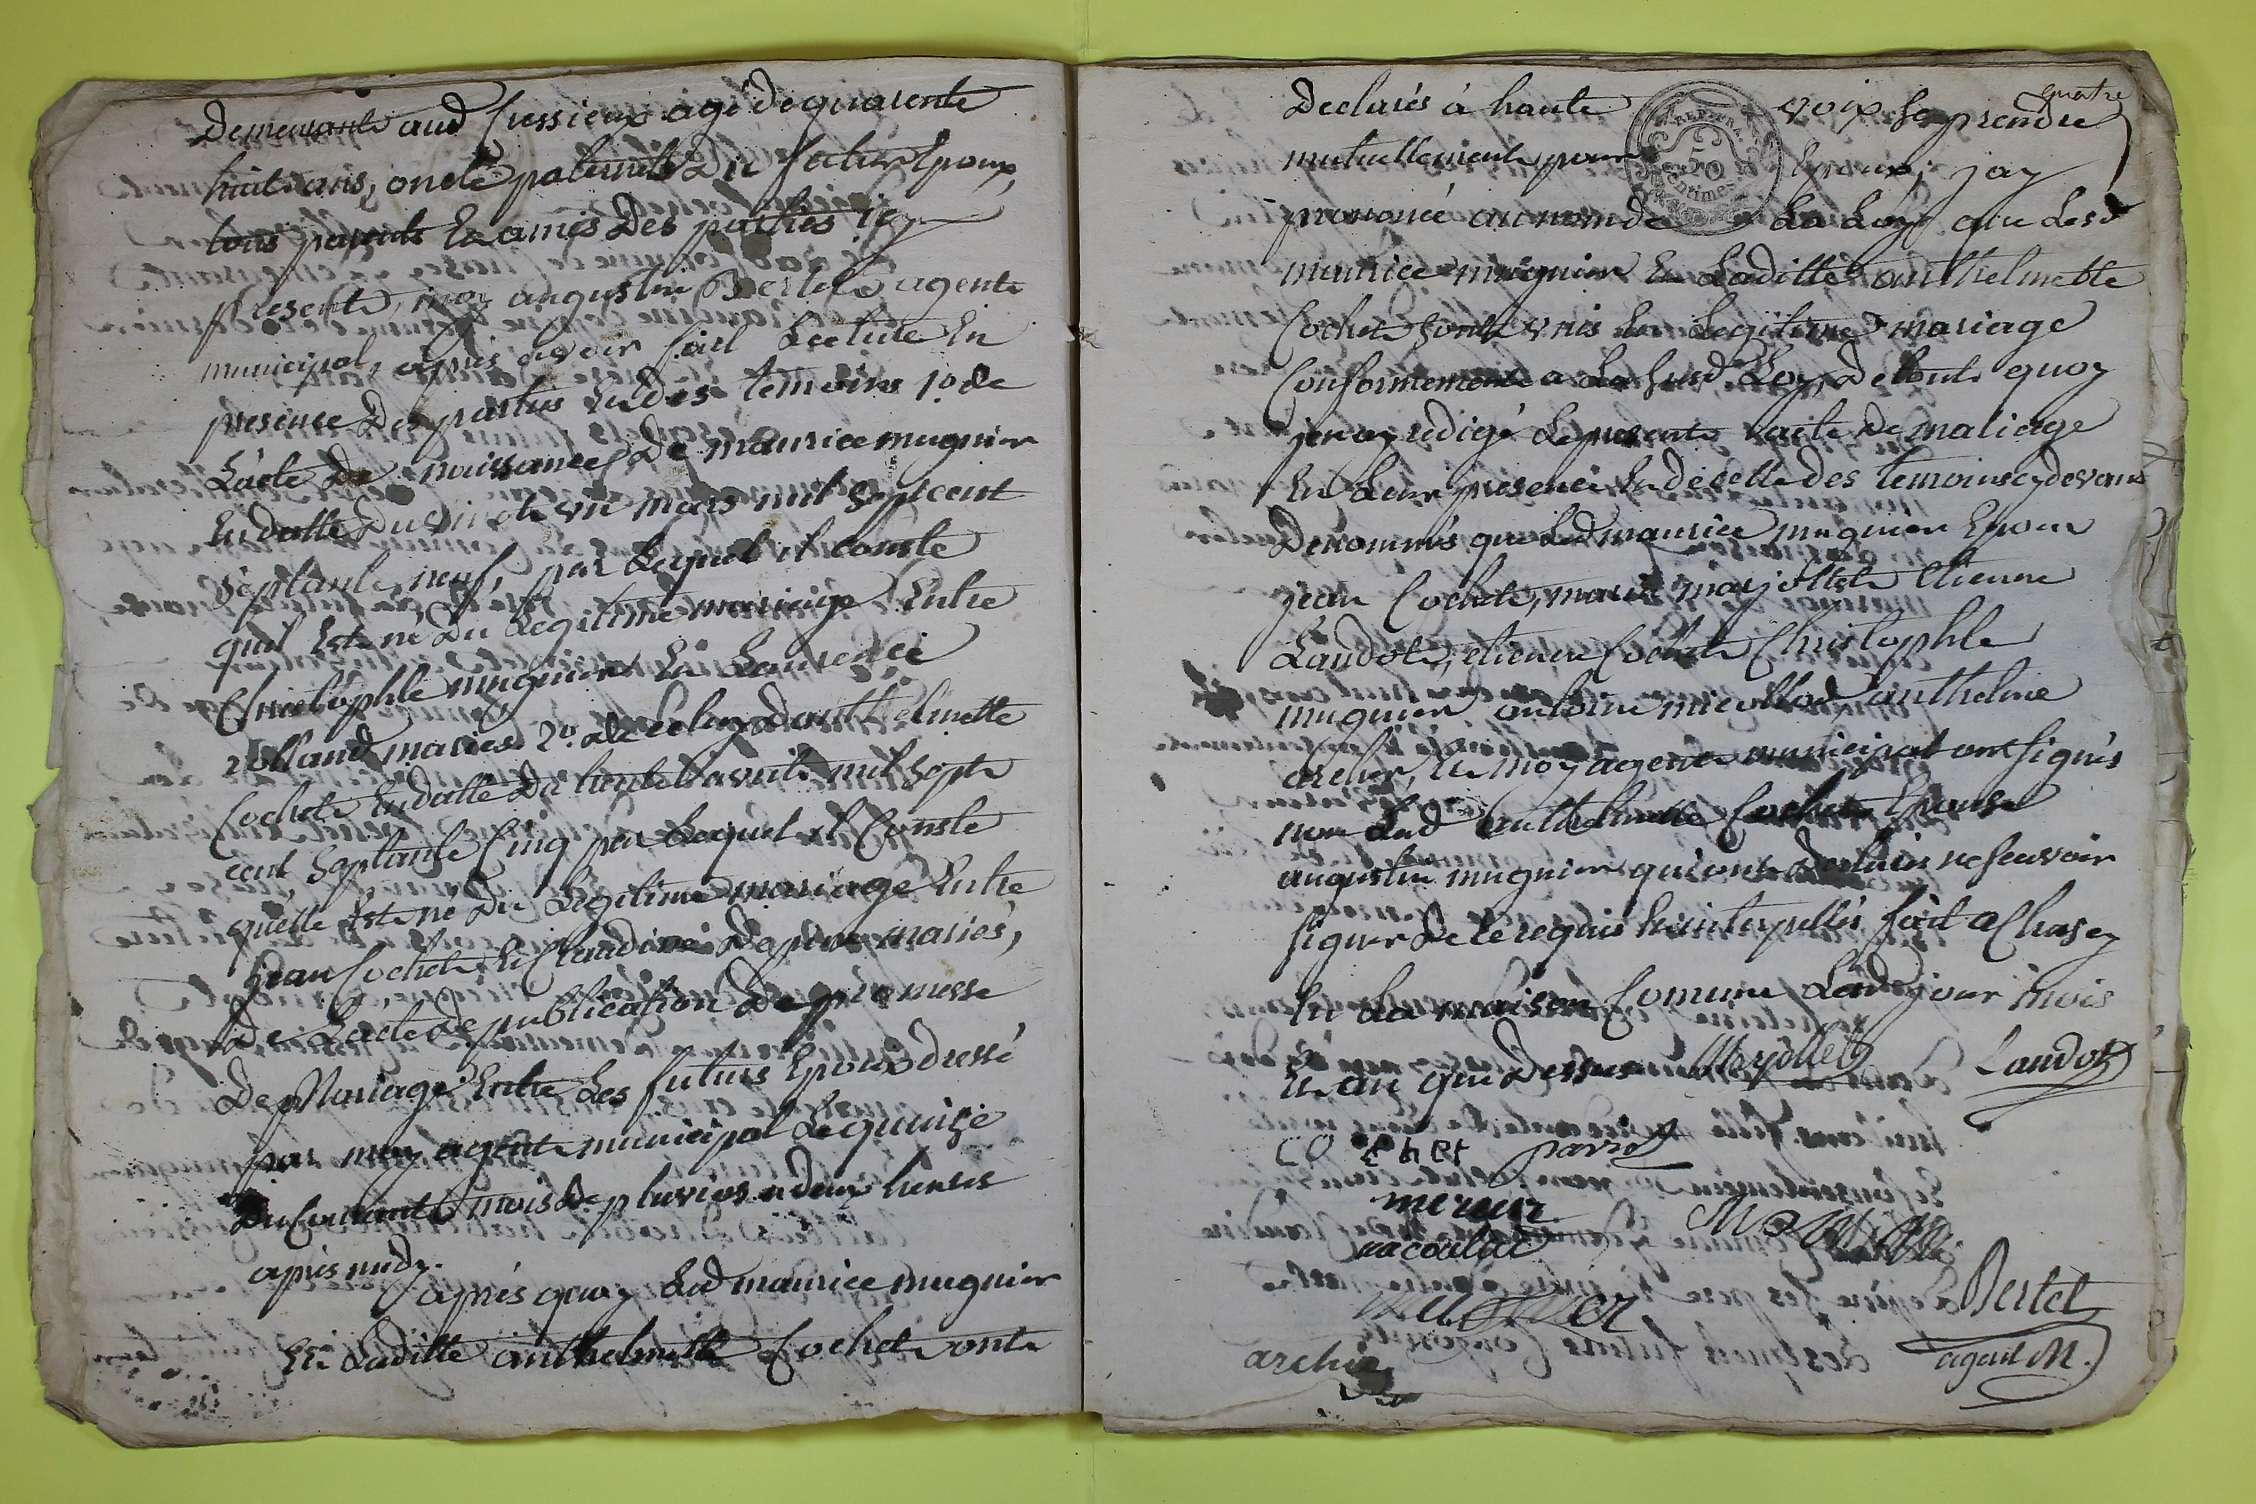 Demeurant aud Cressieux agé de quarente
huit ans, oncle paternel Du futur Epoux,
tous parents Et amis Des parties icy
present, moy augustin Bertet agent
municipal, apris avoir fait Lecture En
presence Des parties Et des temoins 1.º de
Lacte De naissance De maurice mugnier
En datte Du vingt un mars mil sept cent
septante neuf, par Lequel il conste
quil Est né Du Legitime mariage Entre
Christophle mugnier Et Laurence
rolland mariés 2.º de celuy danthelmette
Cochet En datte Du trente avril mil sept
cent septante Cinq par Lequel il Conste
quelle Est né Du Legitime mariage Entre
jean Cochet Et Claudine Depine mariés,
De Lacte De publication De promesse
De Mariage Entre Les futurs Epoux dressé
par moy agent municipal Le quinze
Du Courant mois De pluviose a deux heures
apris midy.
aprés quoy Led maurice mugnier
Et Laditte anthelmette Cochet ont
quatre
Declarés à haute voix se prendre
mutuellement pour Epoux; jay
prononcé au nom de La Loy que Lesd
maurice mugnier Et Laditte anthelmette
Cochet sont unis En Legitime mariage
Conformement a La susd Loy, De tout quoy
jen ay redigé Le present acte De mariage
En Leur presence Et de celle des temoins cy devant
Denommés que Led maurice mugnier Epoux
jean Cochet, marin marjollet Etienne
Landot, etienne Cochet Christophle
mugnier antoine micollod anthelme
archer, Et moy agent municipal ont signés
non Lad anthelmette Cochet Epouse
augustin mugnier qui ont Declarés ne scavoir
signer De ce requis Et interpellés fait a Chasey
En La maison Comune Lesd jour mois
Et an que Dessus Landot
REP. FRA.
50
centimes
Cochet parrot
nacoulad
Bertet
archer agent M.